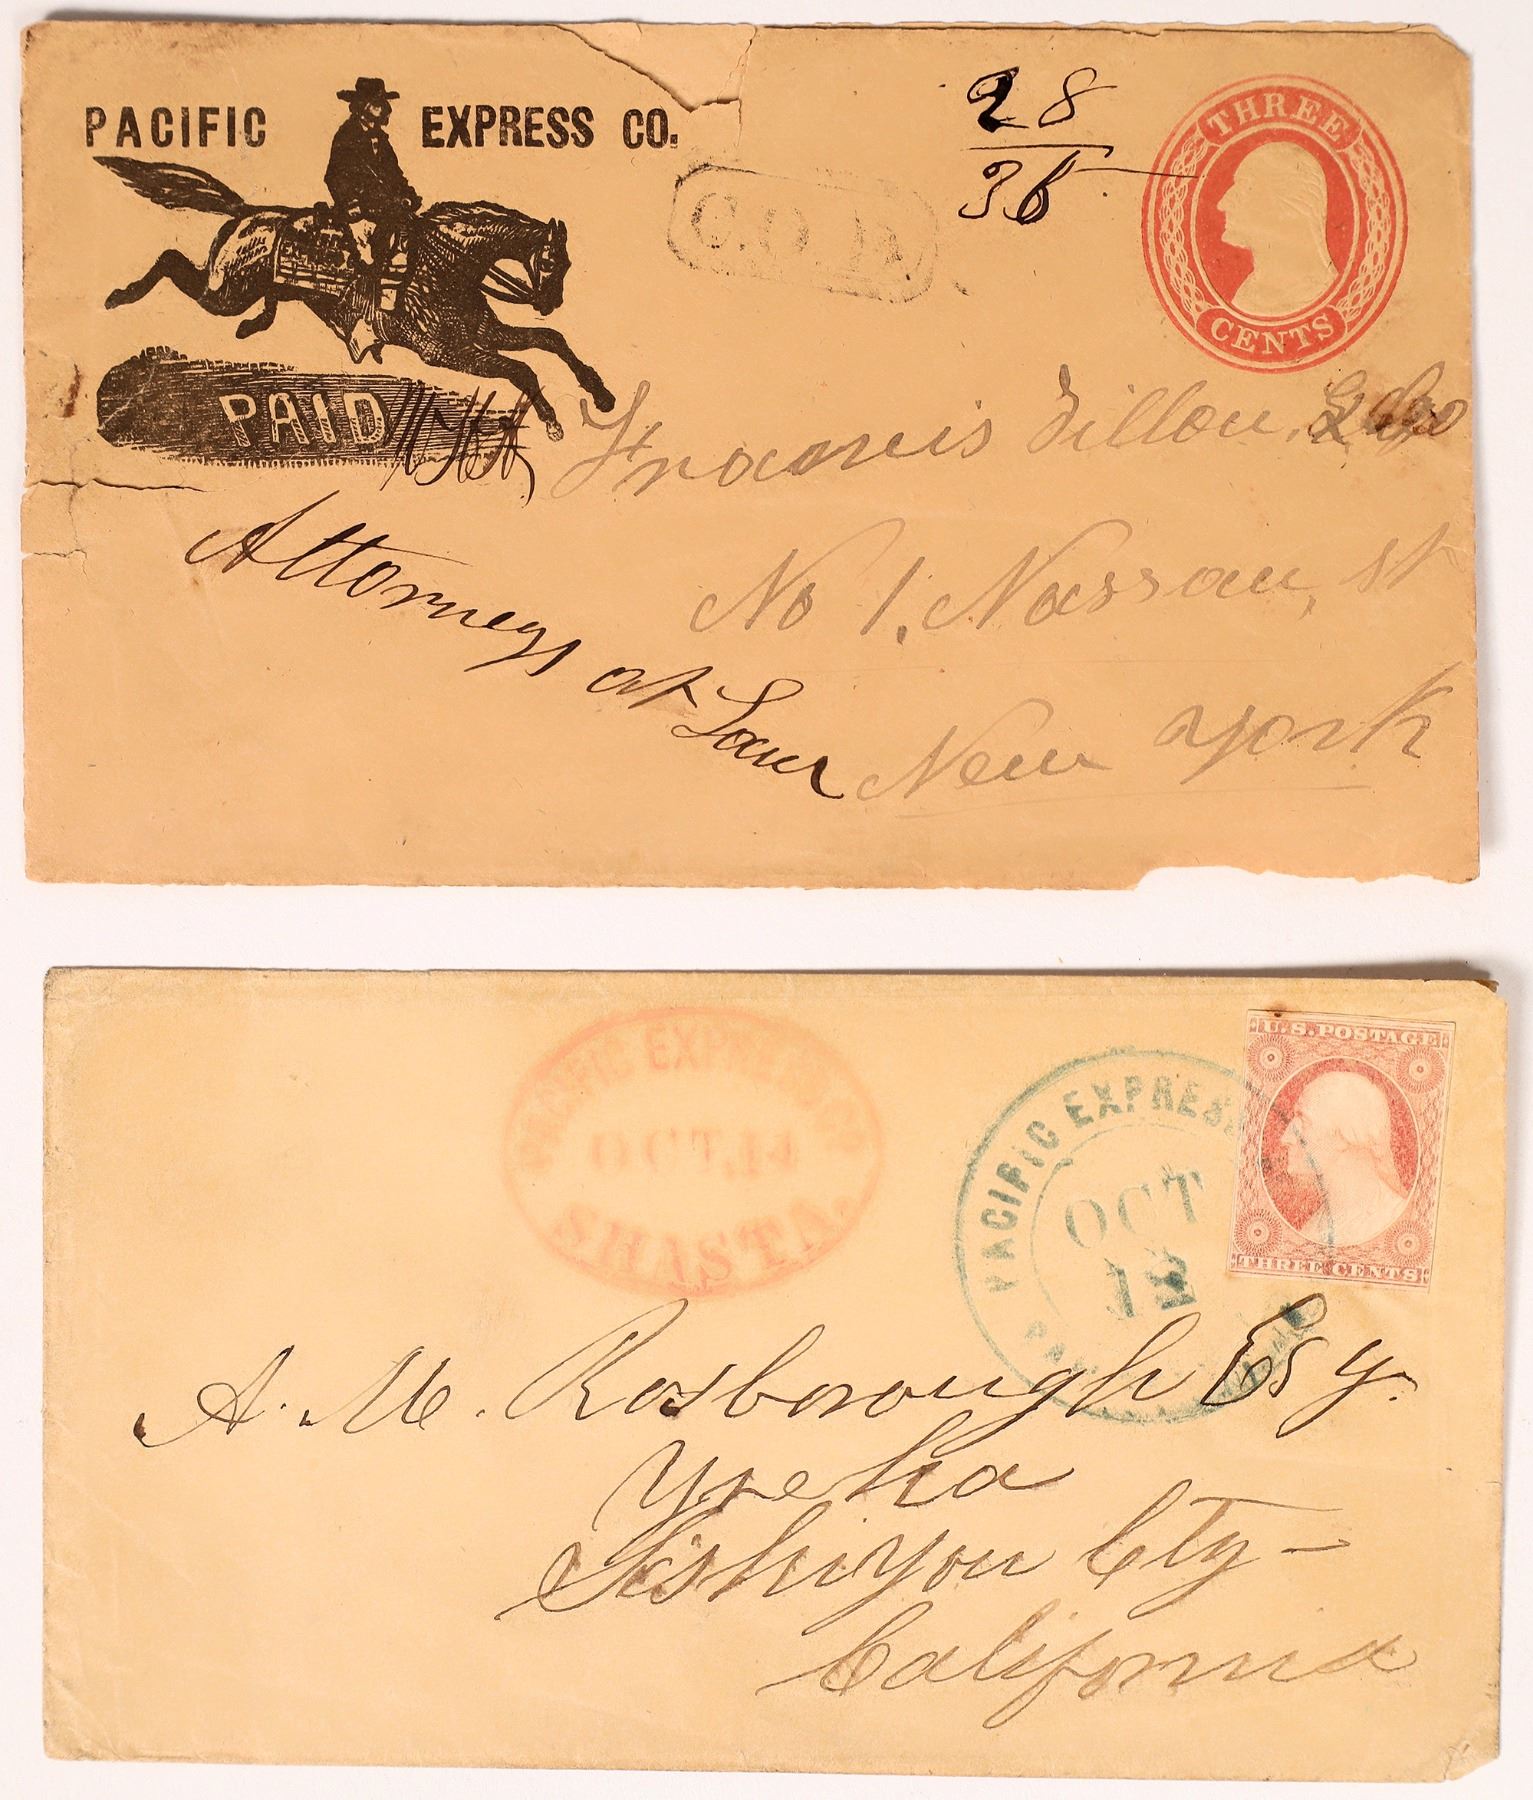 PACIFIC EXPRESS CO.
28
36
THREE
CENTS
C.O.D.
PAID
Francis Dillon
Attorneys at Law
No 1. Nassau, st
New York
PACIFIC EXPRESS CO
OCT. 14
SHASTA.
PACIFIC EXPRESS
OCT
12
U.S. POSTAGE
THREE CENTS
A. M. Rosborough Esq.
Yreka
Siskiyou Cty -
California